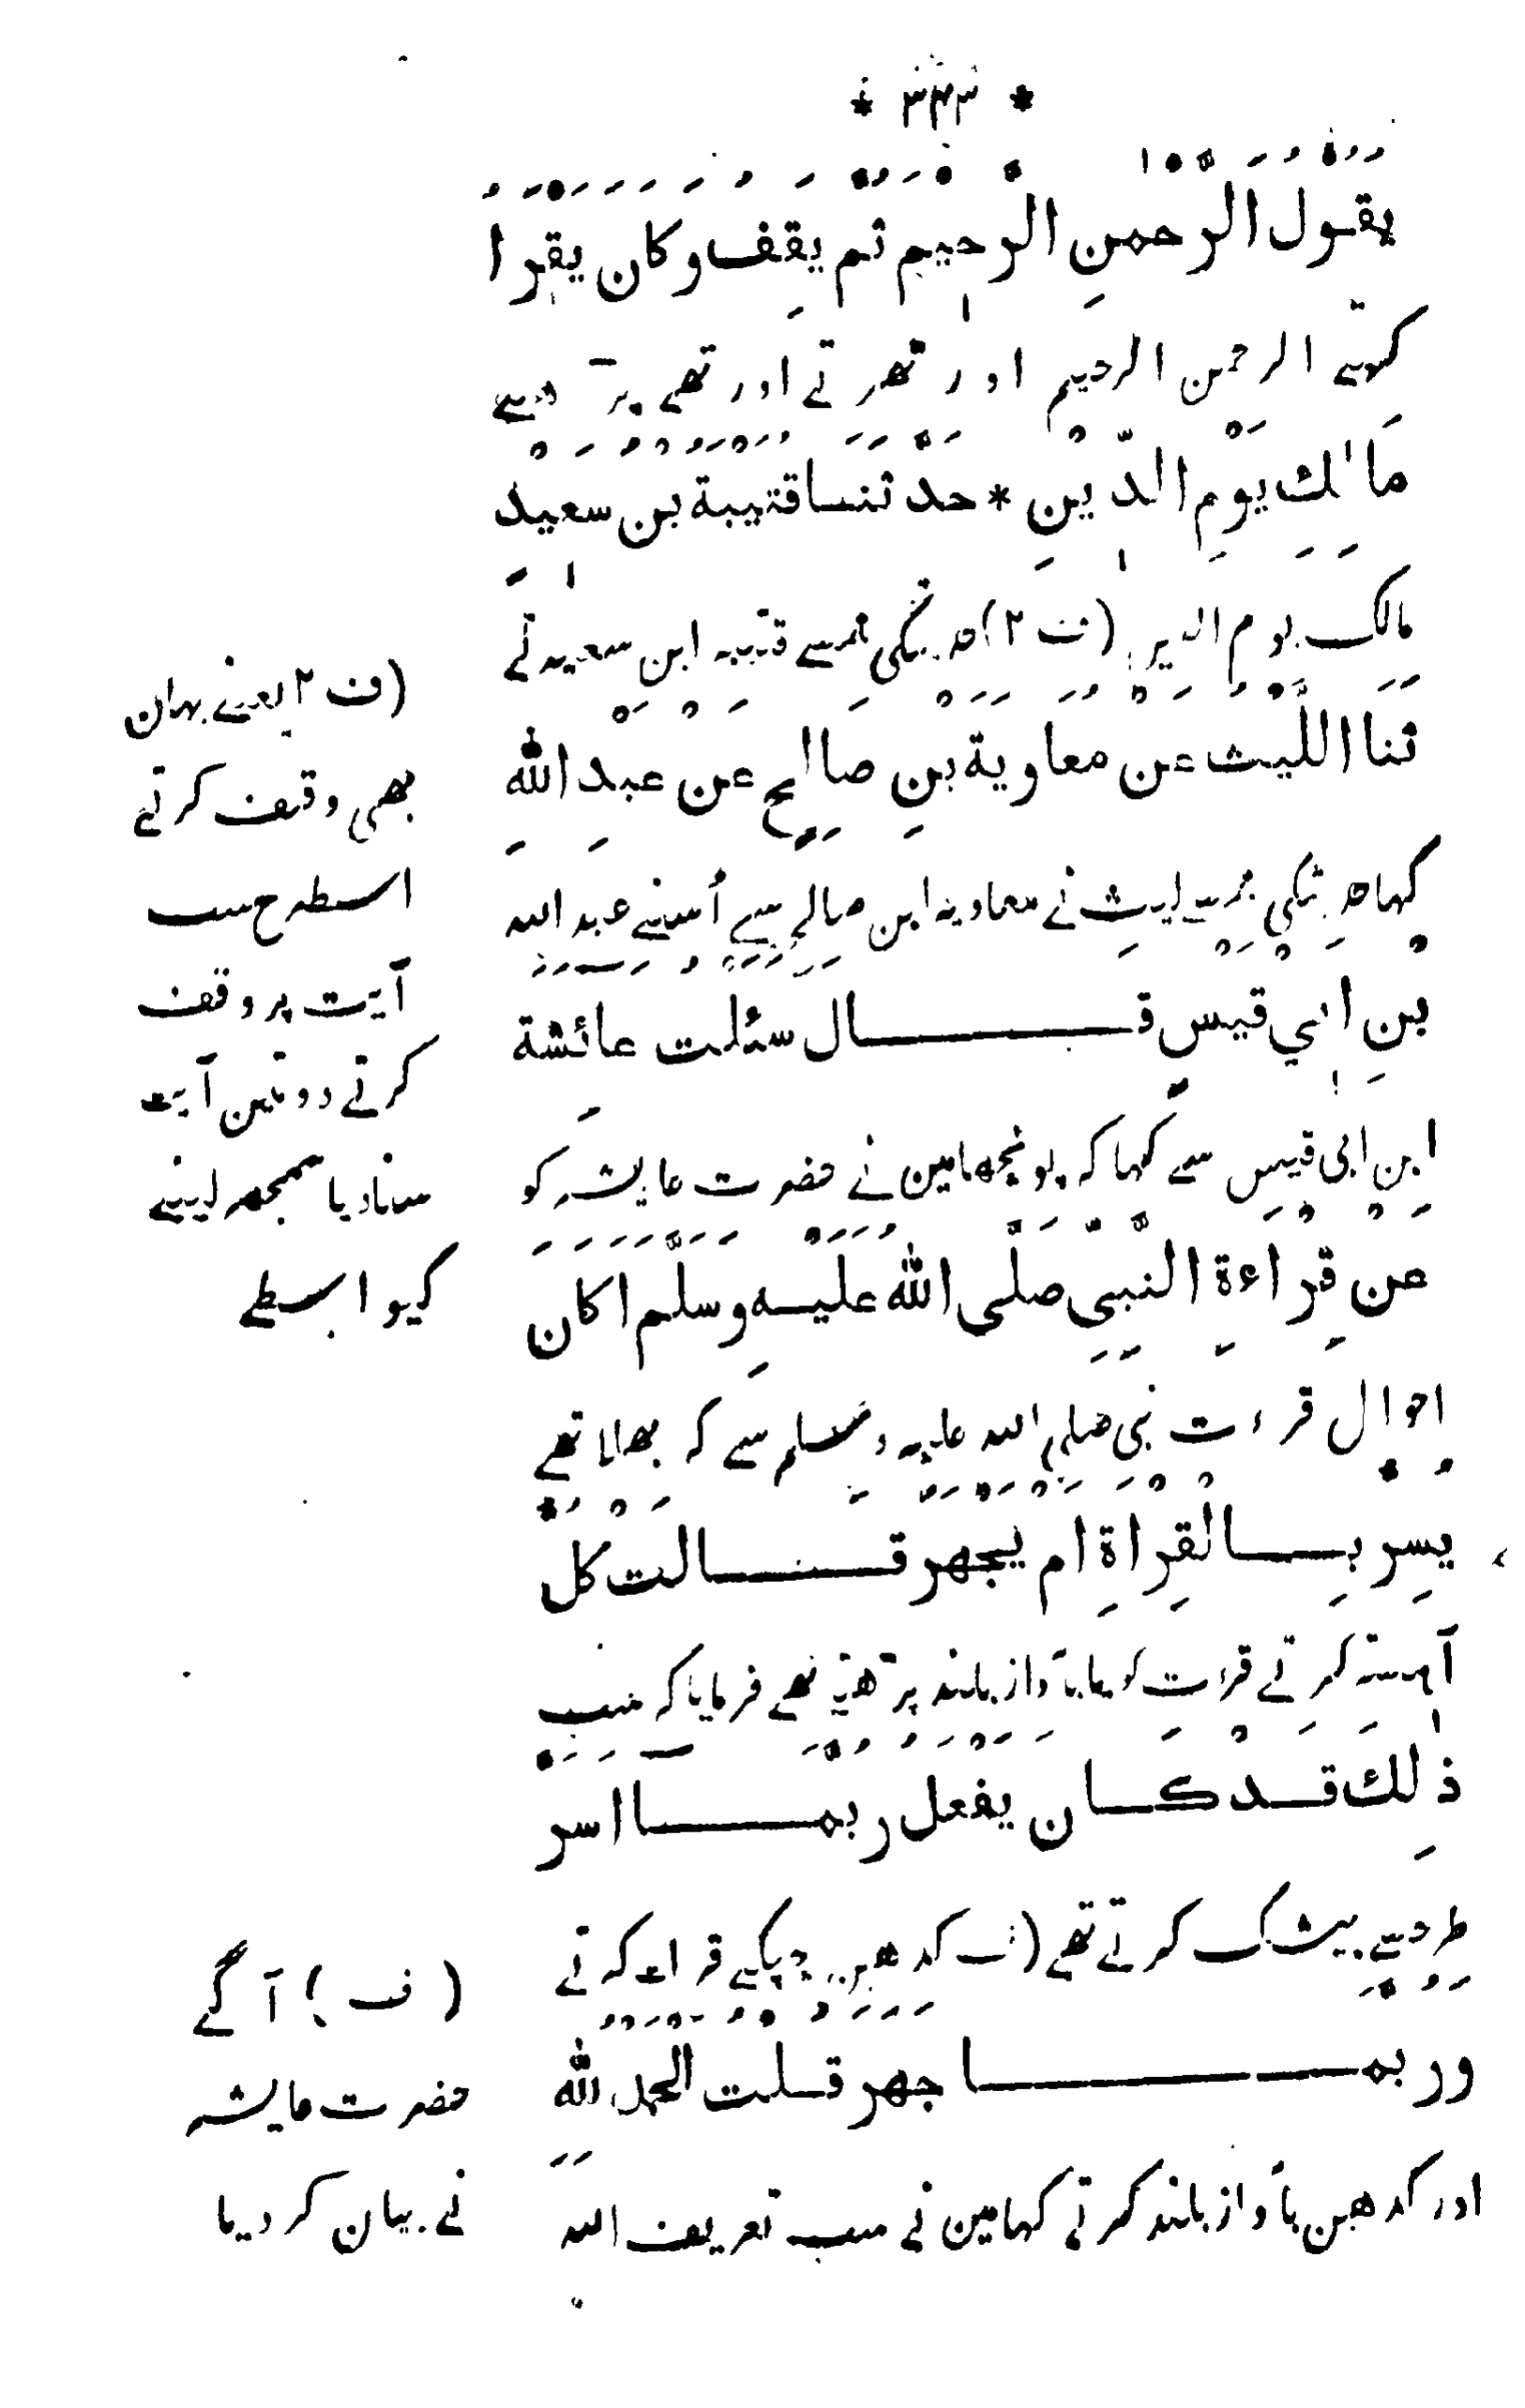 * ٣٤٣ *
يقول الرحمنِ الرحيمِ ثم يقِف وكان يقرا
کہتے الرحمن الرحیم اور ٹھرتے اور تھے پڑھتے
مَالِكِ يَوْمِ الدِّينِ * حدّثنا قتيبة بن سعيدٍ
مالک یوم الدین (ف ۲) حدیثکی ہمسے قتیبہ ابن سعید نے
ثَنَا اللَّيث عن معاوية بنِ صالِحٍ عن عبدِ اللهِ
کہا حدیثکی ہمسے لیث نے معاویہ ابن صالح سے اُسنے عبد الله
بنِ ابي قيسٍ قال سئلت عائشة
ابن ابی قیس سے کہا کہ پونچھا مین نے حضرت عایشہ کو
عن قِراءةِ النبِيِ صلّى الله عليهِ وسلّم اكان
احوال قرءت نبی صلی الله علیه وسلم سے کہ بھلا تھے
يسِر بِالقِراةِ ام يجهر قالت كل
آہستہ کرتے قرءت کو یا بآواز بلند پڑھتے تھے فرمایا کہ سب
ذٰلِك قد كان يفعل ربما اسر
طرحسے بیشک کرتے تھے (ف کدھین چپکے قراءت کرتے
وربما جهر قلت الحمد لله
اور کدھین بآواز بلند کرتے کہا مین نے سب تعریف الله
(ف ۲ یعنے یہان
بھی وقف کرتے
اسطرح سب
آیت پر وقف
کرتے دو تین آیت
سنادیا سمجھ لینے
کیواسطے
(ف) آگے
حضرت عایشہ
نے بیان کر دیا